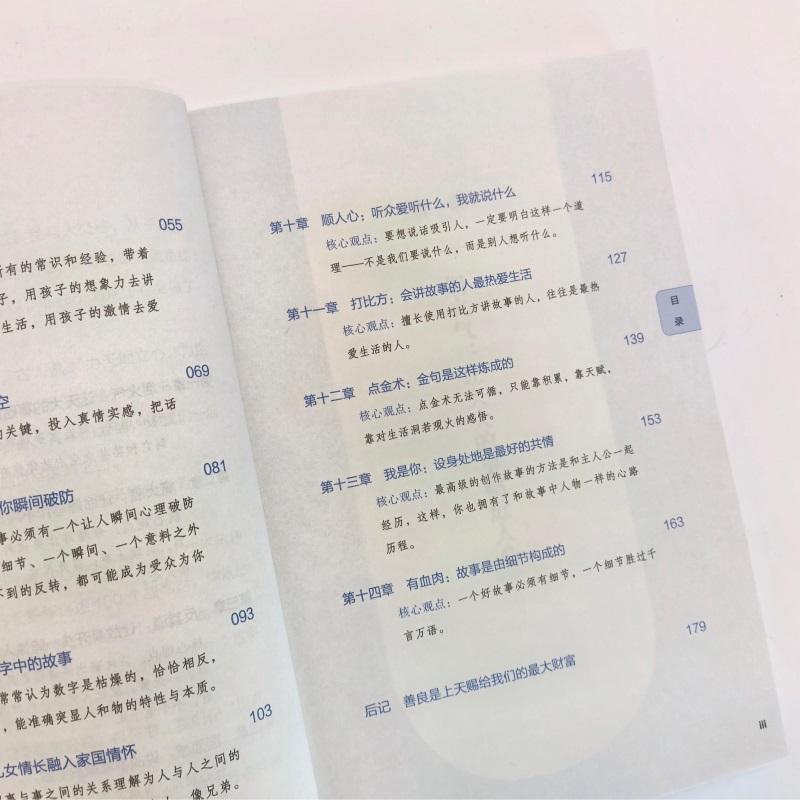 055
所有的常识和经验，带着
子，用孩子的想象力去讲
生活，用孩子的激情去爱
空
069
的关键，投入真情实感，把话
你瞬间破防
081
事必须有一个让人瞬间心理破防
细节、一个瞬间、一个意料之外
不到的反转，都可能成为受众为你
字中的故事
093
常常认为数字是枯燥的，恰恰相反，
，能准确突显人和物的特性与本质。
儿女情长融入家国情怀
103
事与事之间的关系理解为人与人之间的
，像兄弟。
第十章 顺人心：听众爱听什么，我就说什么 115
核心观点：要想说话吸引人，一定要明白这样一个道
理——不是我们要说什么，而是别人想听什么。
第十一章 打比方：会讲故事的人最热爱生活 127
核心观点：擅长使用打比方讲故事的人，往往是最热
爱生活的人。
第十二章 点金术：金句是这样炼成的 139
核心观点：点金术无法可循，只能靠积累，靠天赋，
靠对生活洞若观火的感悟。
第十三章 我是你：设身处地是最好的共情 153
核心观点：最高级的创作故事的方法是和主人公一起
经历，这样，你也拥有了和故事中人物一样的心路
历程。
第十四章 有血肉：故事是由细节构成的 163
核心观点：一个好故事必须有细节，一个细节胜过千
言万语。
后记 善良是上天赐给我们的最大财富 179
目
录
iii